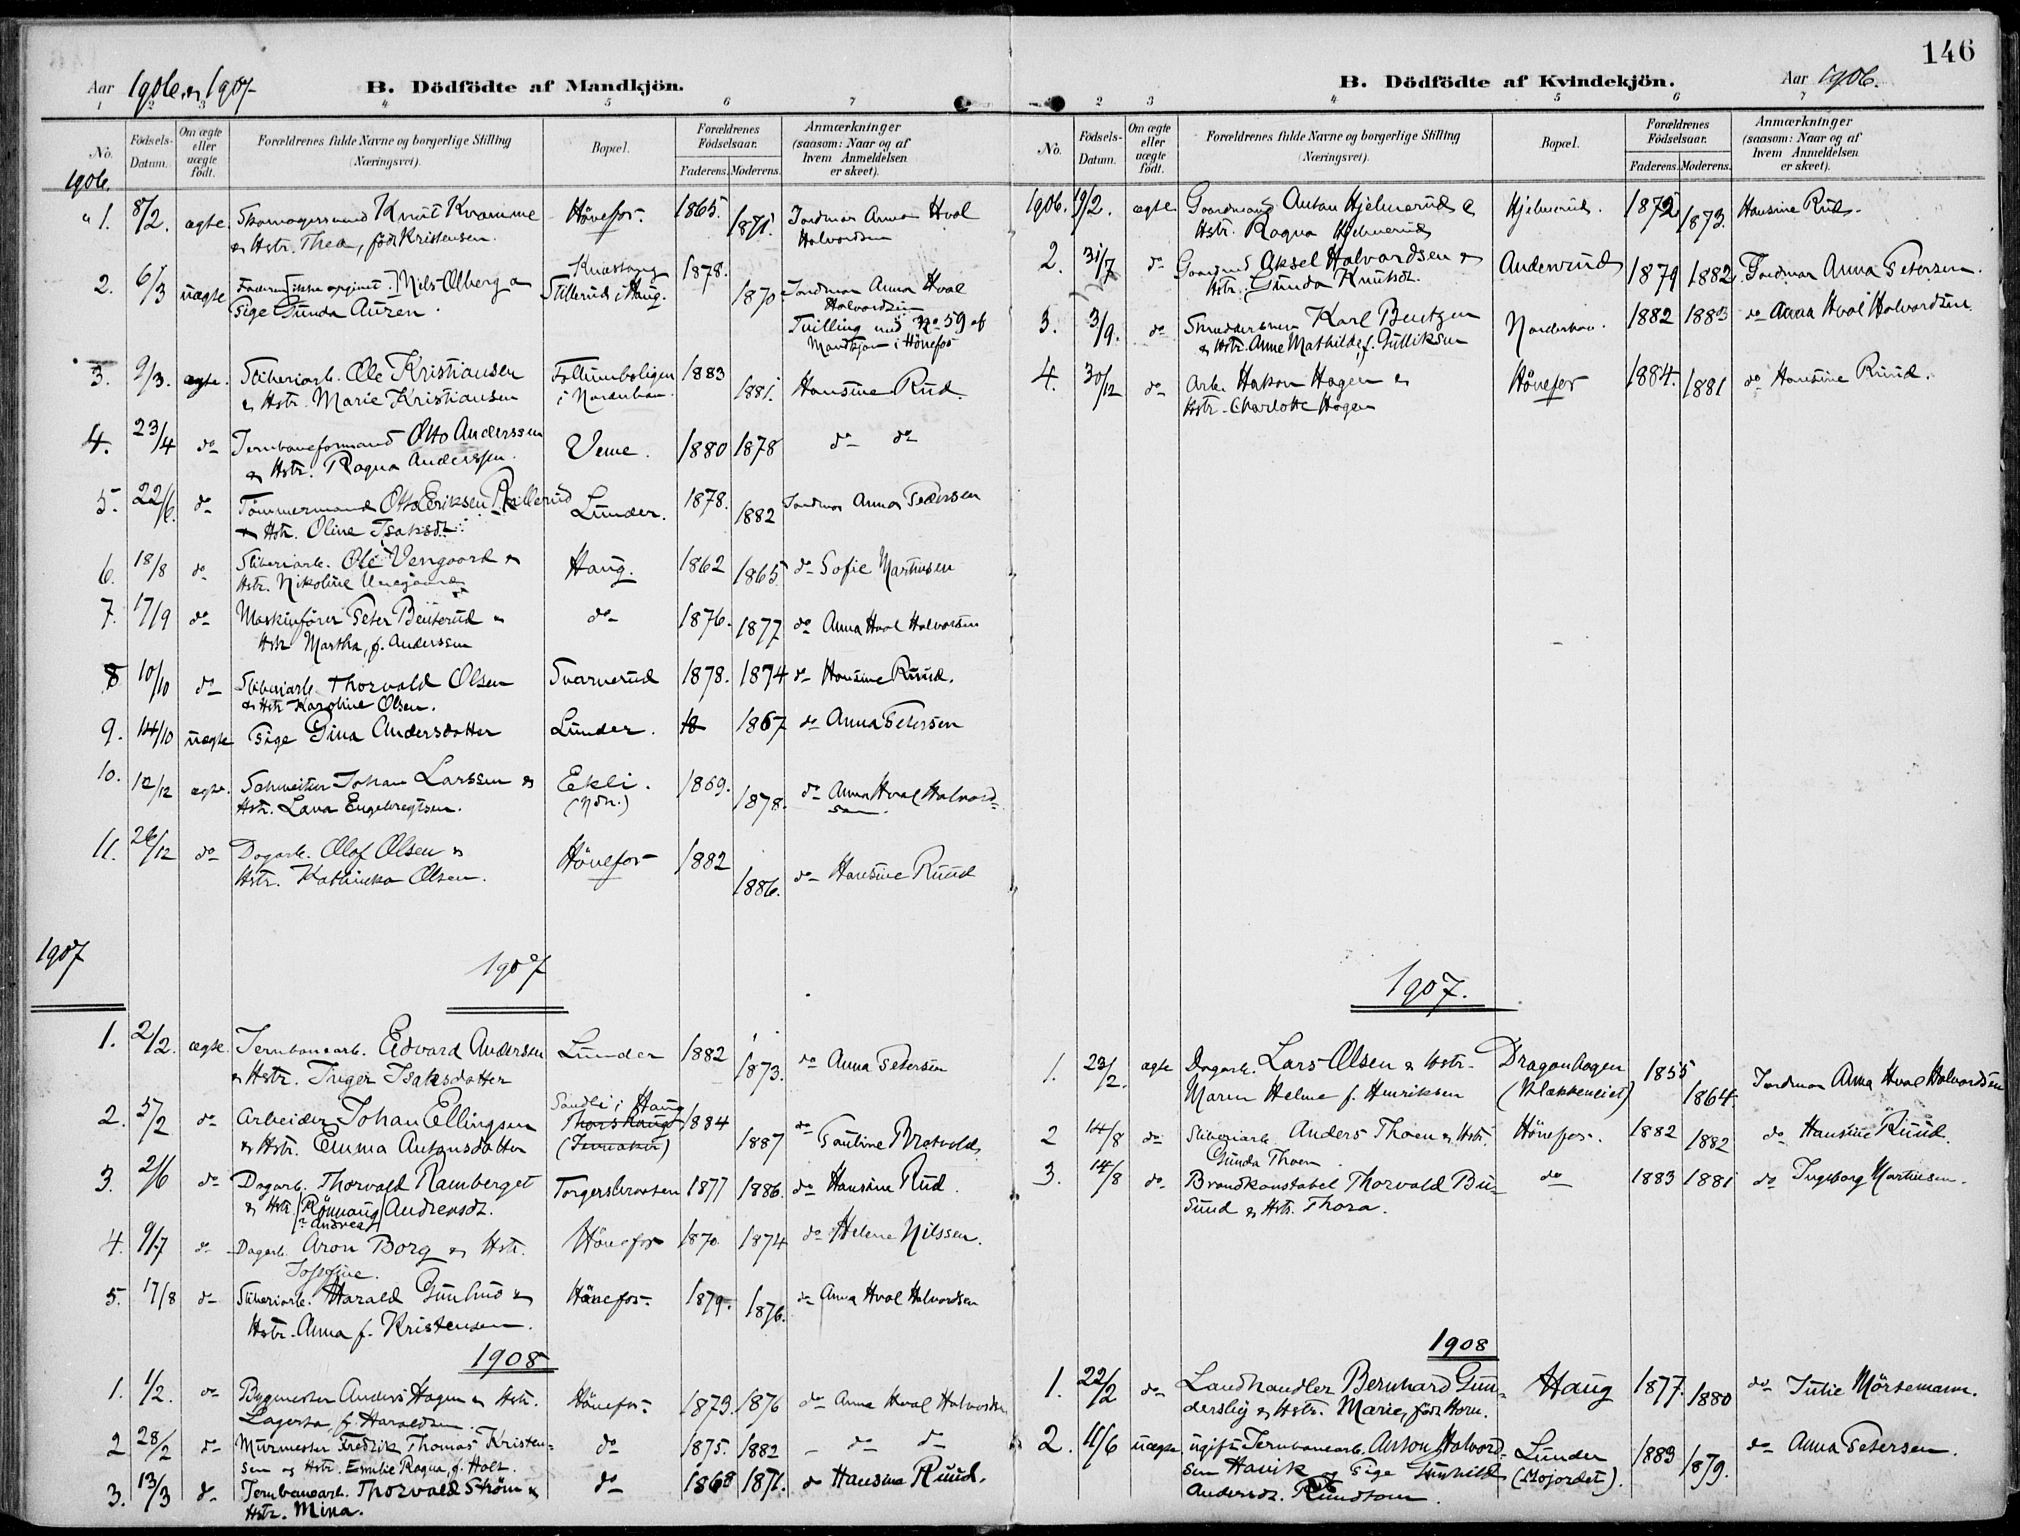 146
Aar 1906 og 1907
B. Dödfödte af Mandkjön.
1 2 3 4 5 6 7
No. Födsels-Datum. Om ægte eller uægte födt. Forældrenes fulde Navne og borgerlige Stilling (Næringsvei). Bopæl. Forældrenes Födselsaar. Faderens. Moderens. Anmærkninger (saasom: Naar og af hvem Anmeldelsen er skeet).
1906.
" 1. 8/2. ægte. Skomagersvend Knut Kvamme Hönefos. 1865. 1871. Jordmor Anna Hval
& Hstr. Thea, föd Kristensen. Halvordsen
2. 6/3 uægte Faderen ikke opgivet. Nils Ølberg & Knæstang 1878. 1870 Jordmor Anna Hval
Pige Gunda Auren. Stillerud i Haug. Halvordsen
Tvilling med No 59 af
Mandkjøn i Hönefos
3. 9/3. ægte. Sliberiarb. Ole Kristiansen Follumboligen 1883 1881. Hansine Rud.
& Hstr. Marie Kristiansen i Norderhov.
4. 23/4 do Jernbaneformand Otto Anderssen Veme. 1880 1878 do do
& Hstr. Ragna Anderssen.
5. 22/6. do Tömmermand Otto Eriksen Lunder. 1878. 1882 Jordmor Anna Pedersen
& Hstr. Oline Isaksdt.
6. 18/8 do Sliberiarb. Ole Vengaard & Haug. 1862 1865 do Sofie Martinsen
Hstr. Nikoline
7. 17/9 do Maskinförer Peter Benterud & do 1876. 1877 do Anna Hval Halvorsen
Hstr Martha, f. Anderssen
8 10/10 do Sliberiarb. Thorvald Olsen Svarverud 1878. 1874 do Hansine Ruud.
& Hstr Karoline Olsen.
9. 14/10 uægte Pige Gina Andersdatter Lunder. 18 1867 do Anna Petersen
10. 12/12 ægte. Schweitser Johan Larssen & Ekli. 1869. 1878. do Anna Hval Halvord=
Hstr. Lava Engebregtsen. (Ndr.) sen
11. 26/12 do Dagarb. Olaf Olsen & Hönefos 1882 1886. do Hansine Ruud
Hstr. Kathinka Olsen.
1907 1907
1. 2/2. ægte. Jernbanearb. Edvard Andersen Lunder 1882 1873. do Anna Petersen
& Hstr. Inger Isaksdatter
2. 5/2 do Arbeider Johan Ellingsen Sandli i Haug 1884 1887 do Pauline Bratvold
& Hstr. Emma Antonsdatter
3. 2/6 do Dagarb. Thorvald Ramberget Torgersbraaten 1877 1886. do Hansine Rud.
& Hstr Rönnaug Andrensdt.
? Andreas
4. 9/7 do Dagarb. Aron Borg & Hstr. Hönefos 1870 1874 do Helene Nilssen.
Josefine.
5. 17/8 do Sliberiarb. Harald & Hönefos. 1879. 1876. do Anna Hval Halvordsen
Hstr. Anna f. Kristensen.
1908
1. 1/2. do Bygmester Anders Hagen & Hstr. Hönefos. 1873. 1876 do Anna Hval Halvordsen
Lagerta f. Haraldsen.
2 28/2 do Murmester Fredrik Thomas Kristen= do 1875. 1882 do do
sen og Hstr. Emilie Ragna, f. Holt.
3. 13/3 do Jernbanearb. Thorvald Ström & do 1868 1871. do Hansine Ruud.
Hstr. Mina.
B. Dödfödte af Kvindekjön.
Aar 1906.
2 3 4 5 6 7
No. Födsels-Datum. Om ægte eller uægte födt. Forældrenes fulde Navne og borgerlige Stilling (Næringsvei). Bopæl. Forældrenes Födselsaar. Faderens. Moderens. Anmærkninger (saasom: Naar og af hvem Anmeldelsen er skeet).
1906. 19/2. ægte Gaardmand Anton Hjelmerud & Hjelmerud. 1872 1873. Hansine Rud.
Hstr. Ragna Hjelmerud
2. 31/7 do Gaardmd Aksel Halvordsen & Anderrud 1879 1882 Jordmor Anna Petersen.
Hstr. Gunda Knutsdt.
3. 3/9. do Karl Bentzen Norderhov. 1882 1883 do Anna Hval Halvordsen
& Hstr. Anne Mathilde, f. Gulliksen
4. 30/12 do Arb. Hakon Hagen & Hönefos 1884. 1881 do Hansine Ruud.
Hstr. Charlotte Hagen
1907.
1. 23/2. ægte Dagarb. Lars Olsen & Hstr. Dragonhagen 1855 1864. Jordmor Anna Hval Halvordsen
Maren Helene f. Henriksen (Klækkeneiet)
2 14/8 do Sliberiarb. Anders Thoen & Hstr. Hönefos. 1882 1882 do Hansine Ruud.
Gunda Thoen
3. 14/8 do Brandkonstabel Thorvald Bu= do 1883 1881 do Ingeborg Martinsen.
sund & Hstr. Thora.
1908
1. 22/2 do Landhandler Bernhard Gun= Haug 1877. 1880 do Julie Mörsemann.
derslig & Hstr. Marie, född Horn.
2. 11/6 uægte ugift Jernbanearb. Anton Halvord= Lunder 1883 1879. do Anna Petersen.
sen Hasvik og Pige Gunhild (Mojordet).
Andersdt.